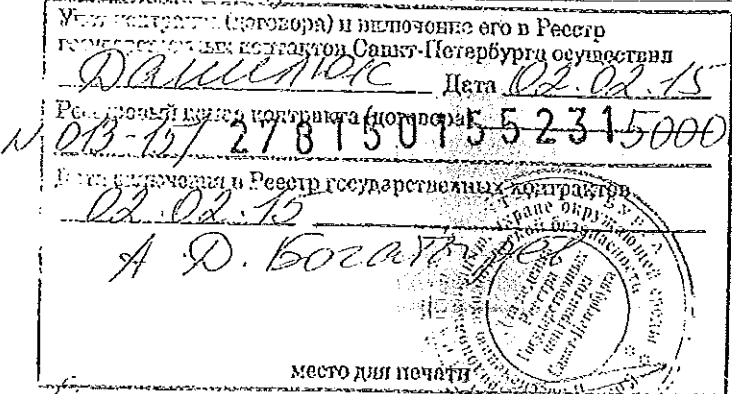 Учет контракта (договора) и включение его в Реестр
государственных контрактов Санкт-Петербурга осуществил
Данилюк Дата 02.02.15
Реестровый номер контракта (договора)
N 013-15/ 2781501552315000
Дата включения в Реестр государственных контрактов
02.02.15
А.Д. Богатырев
охране окружающей среды
безопасности
для ведения
Реестра
Государственных
контрактов
Санкт-Петербурга
место для печати